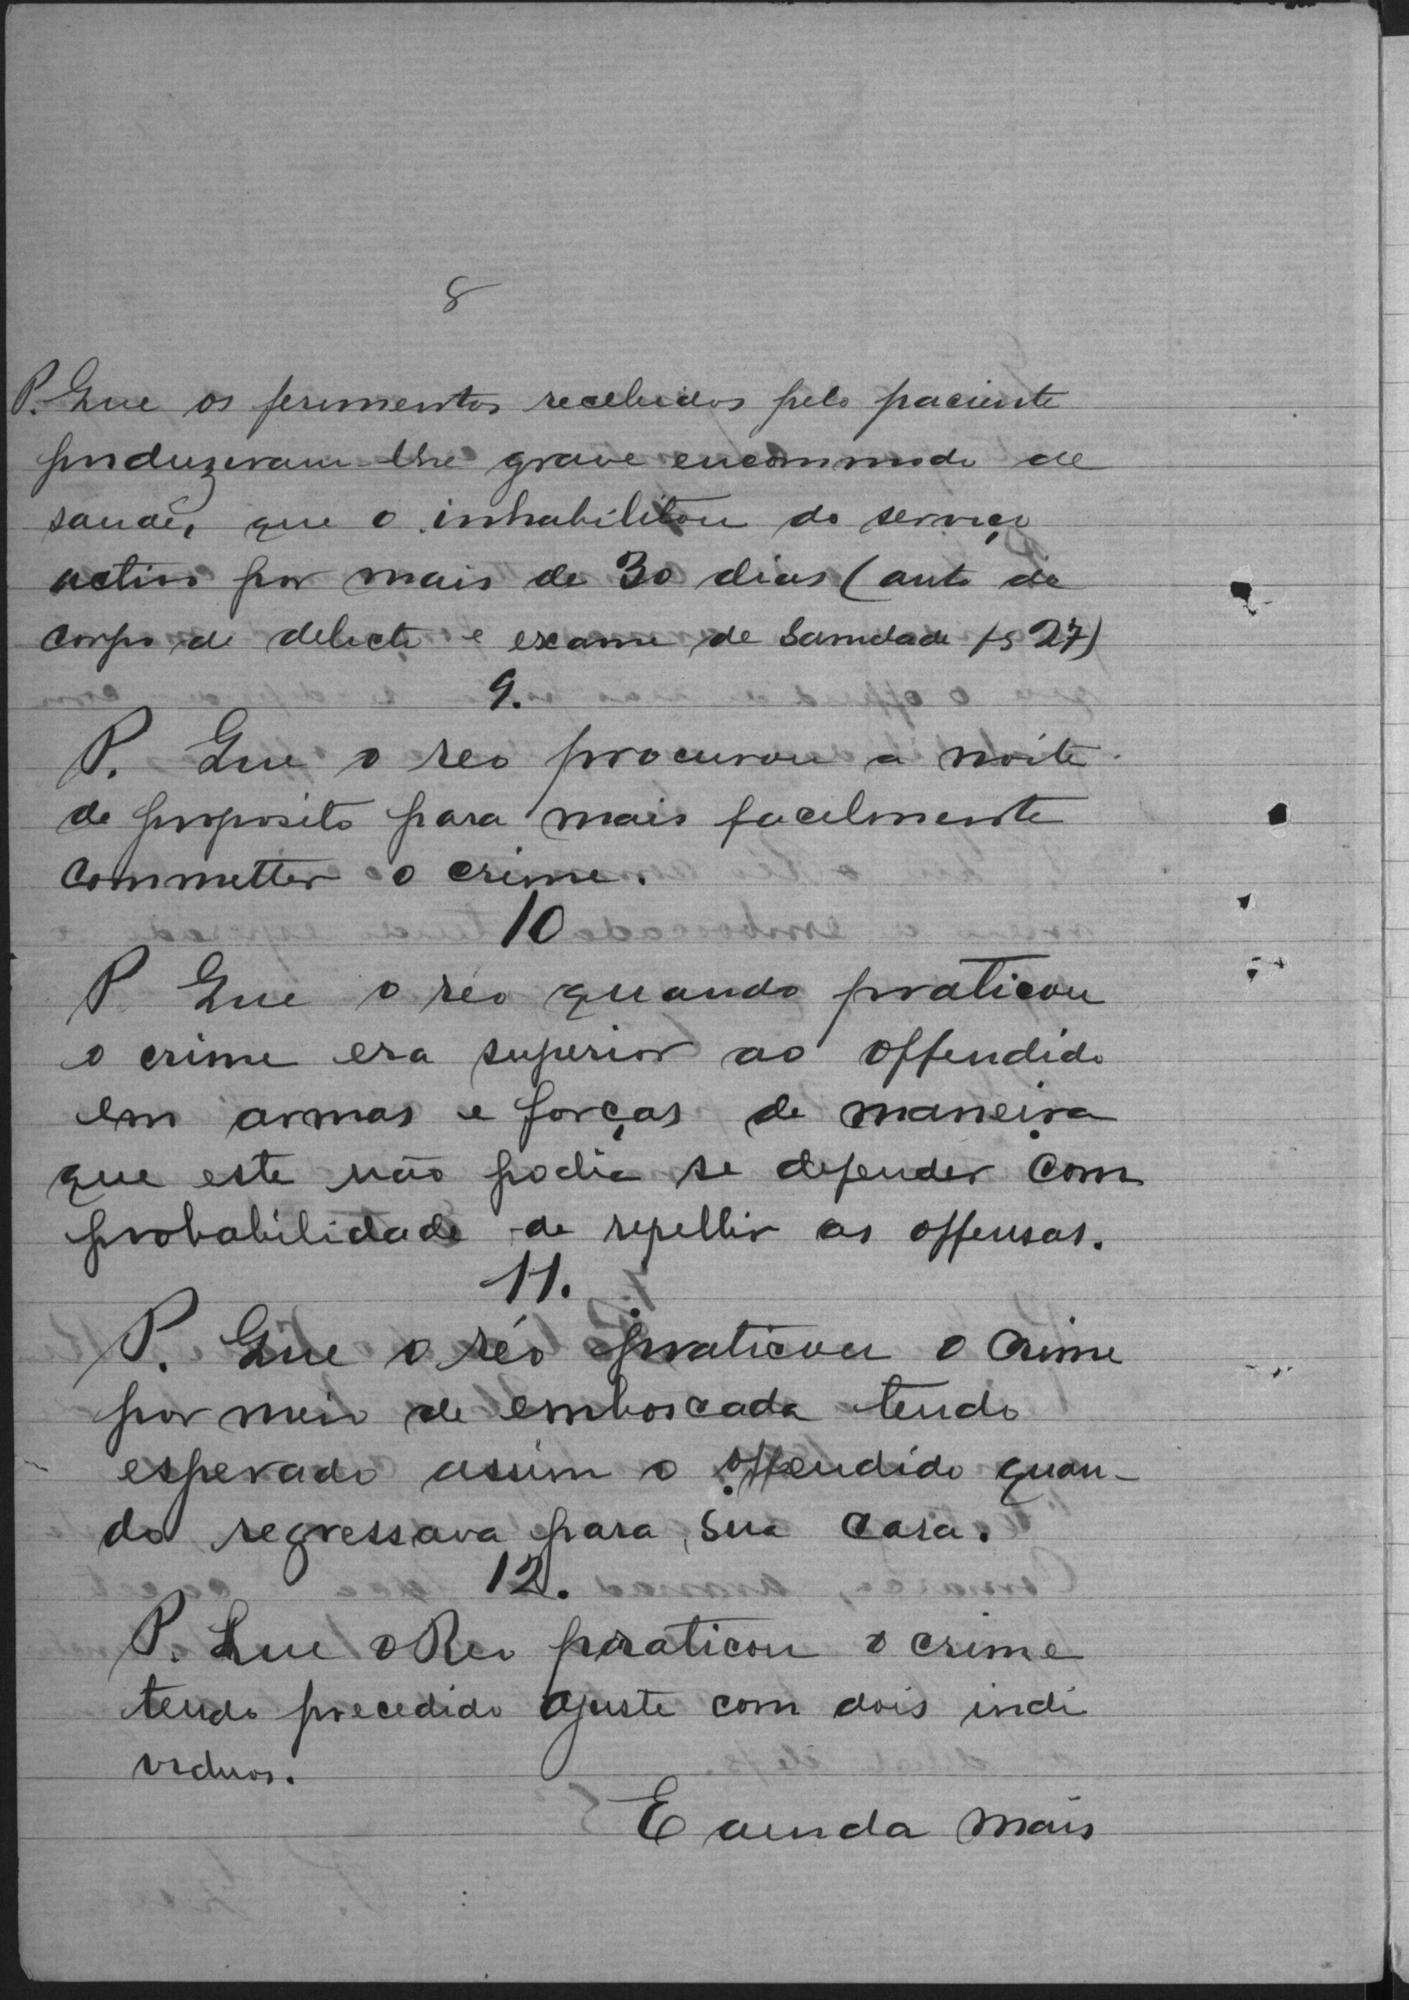 8
P. Que os ferimentos recebidos pelo paciente
produzeram-lhe grave encommodo de
saude, que o inhabilitou do serviço
activo por mais de 30 dias (auto de
corpo de delicto e exame de Sanidade fs 27)
9.
P. Que o reo procurou a noite
de proposito para mais facelmente
commetter o crime.
10
P Que o réo quando praticou
o crime era superior ao offendido
em armas e forças de maneira
que este não podia se defender com
probabilidade de repellir as offensas.
11.
P. Que o réo praticou o crime
por meio de emboscada tendo
esperado assim o offendido quan-
do regressava para sua casa.
12.
P. Que o Reo praticou o crime
tendo precedido ajuste com dois indi
viduos.
E ainda mais